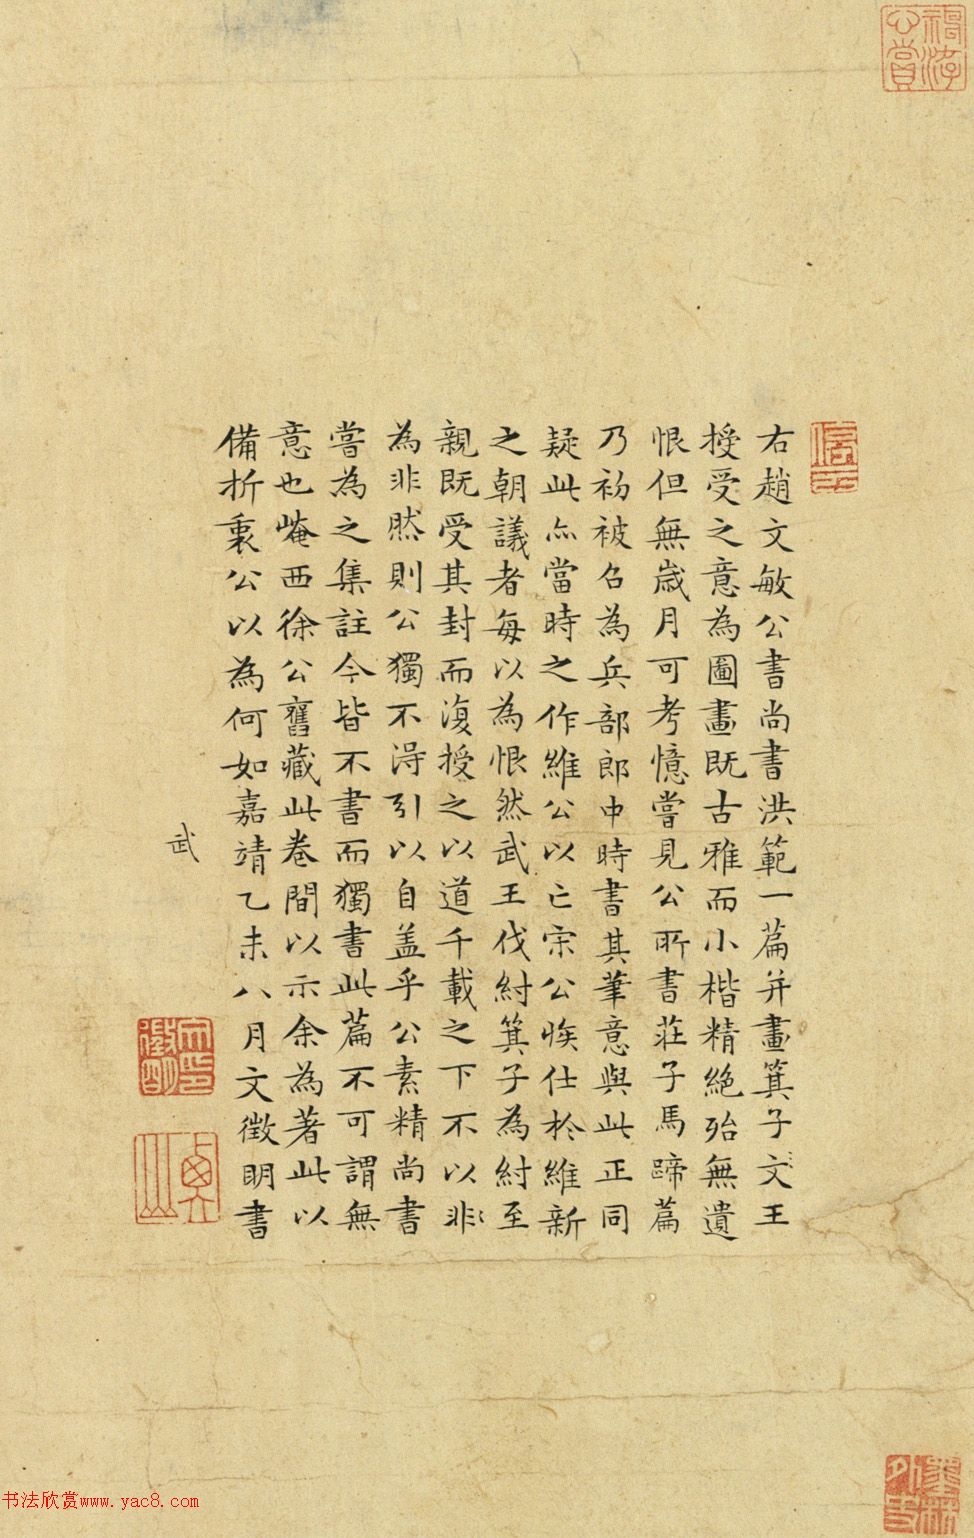 右趙文敏公書尚書洪範一篇并畫箕子文王
授受之意為圖畫既古雅而小楷精絕殆無遺
恨但無歲月可考憶嘗見公所書莊子馬蹄篇
乃初被召為兵部郎中時書其筆意與此正同
疑此亦當時之作維公以亡宋公族仕於維新
之朝議者每以為恨然武王伐紂箕子為紂至
親既受其封而復授之以道千載之下不以非
為非然則公獨不得引以自蓋乎公素精尚書
嘗為之集註今皆不書而獨書此篇不可謂無
意也崦西徐公舊藏此卷間以示余為著此以
備折衷公以為何如嘉靖乙未八月文徵明書
武
停雲
文徵明印
書法欣赏www.yac8.com